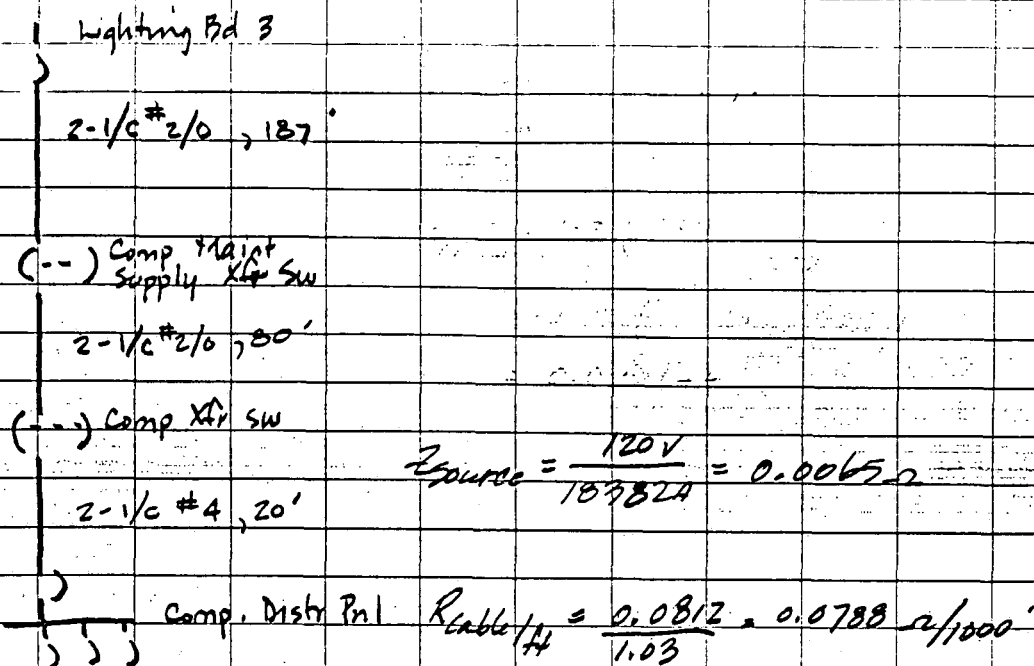 Lighting Bd 3
2-1/c #2/0, 187'
Comp Maint
Supply Xfr Sw
2-1/c #2/0, 80'
Comp Xfr Sw
Zsource = 120V / 18382A = 0.0065 Ω
2-1/c #4, 20'
Comp. Distr Pnl Rcable/ft = 0.0812 / 1.03 = 0.0788 Ω/1000'